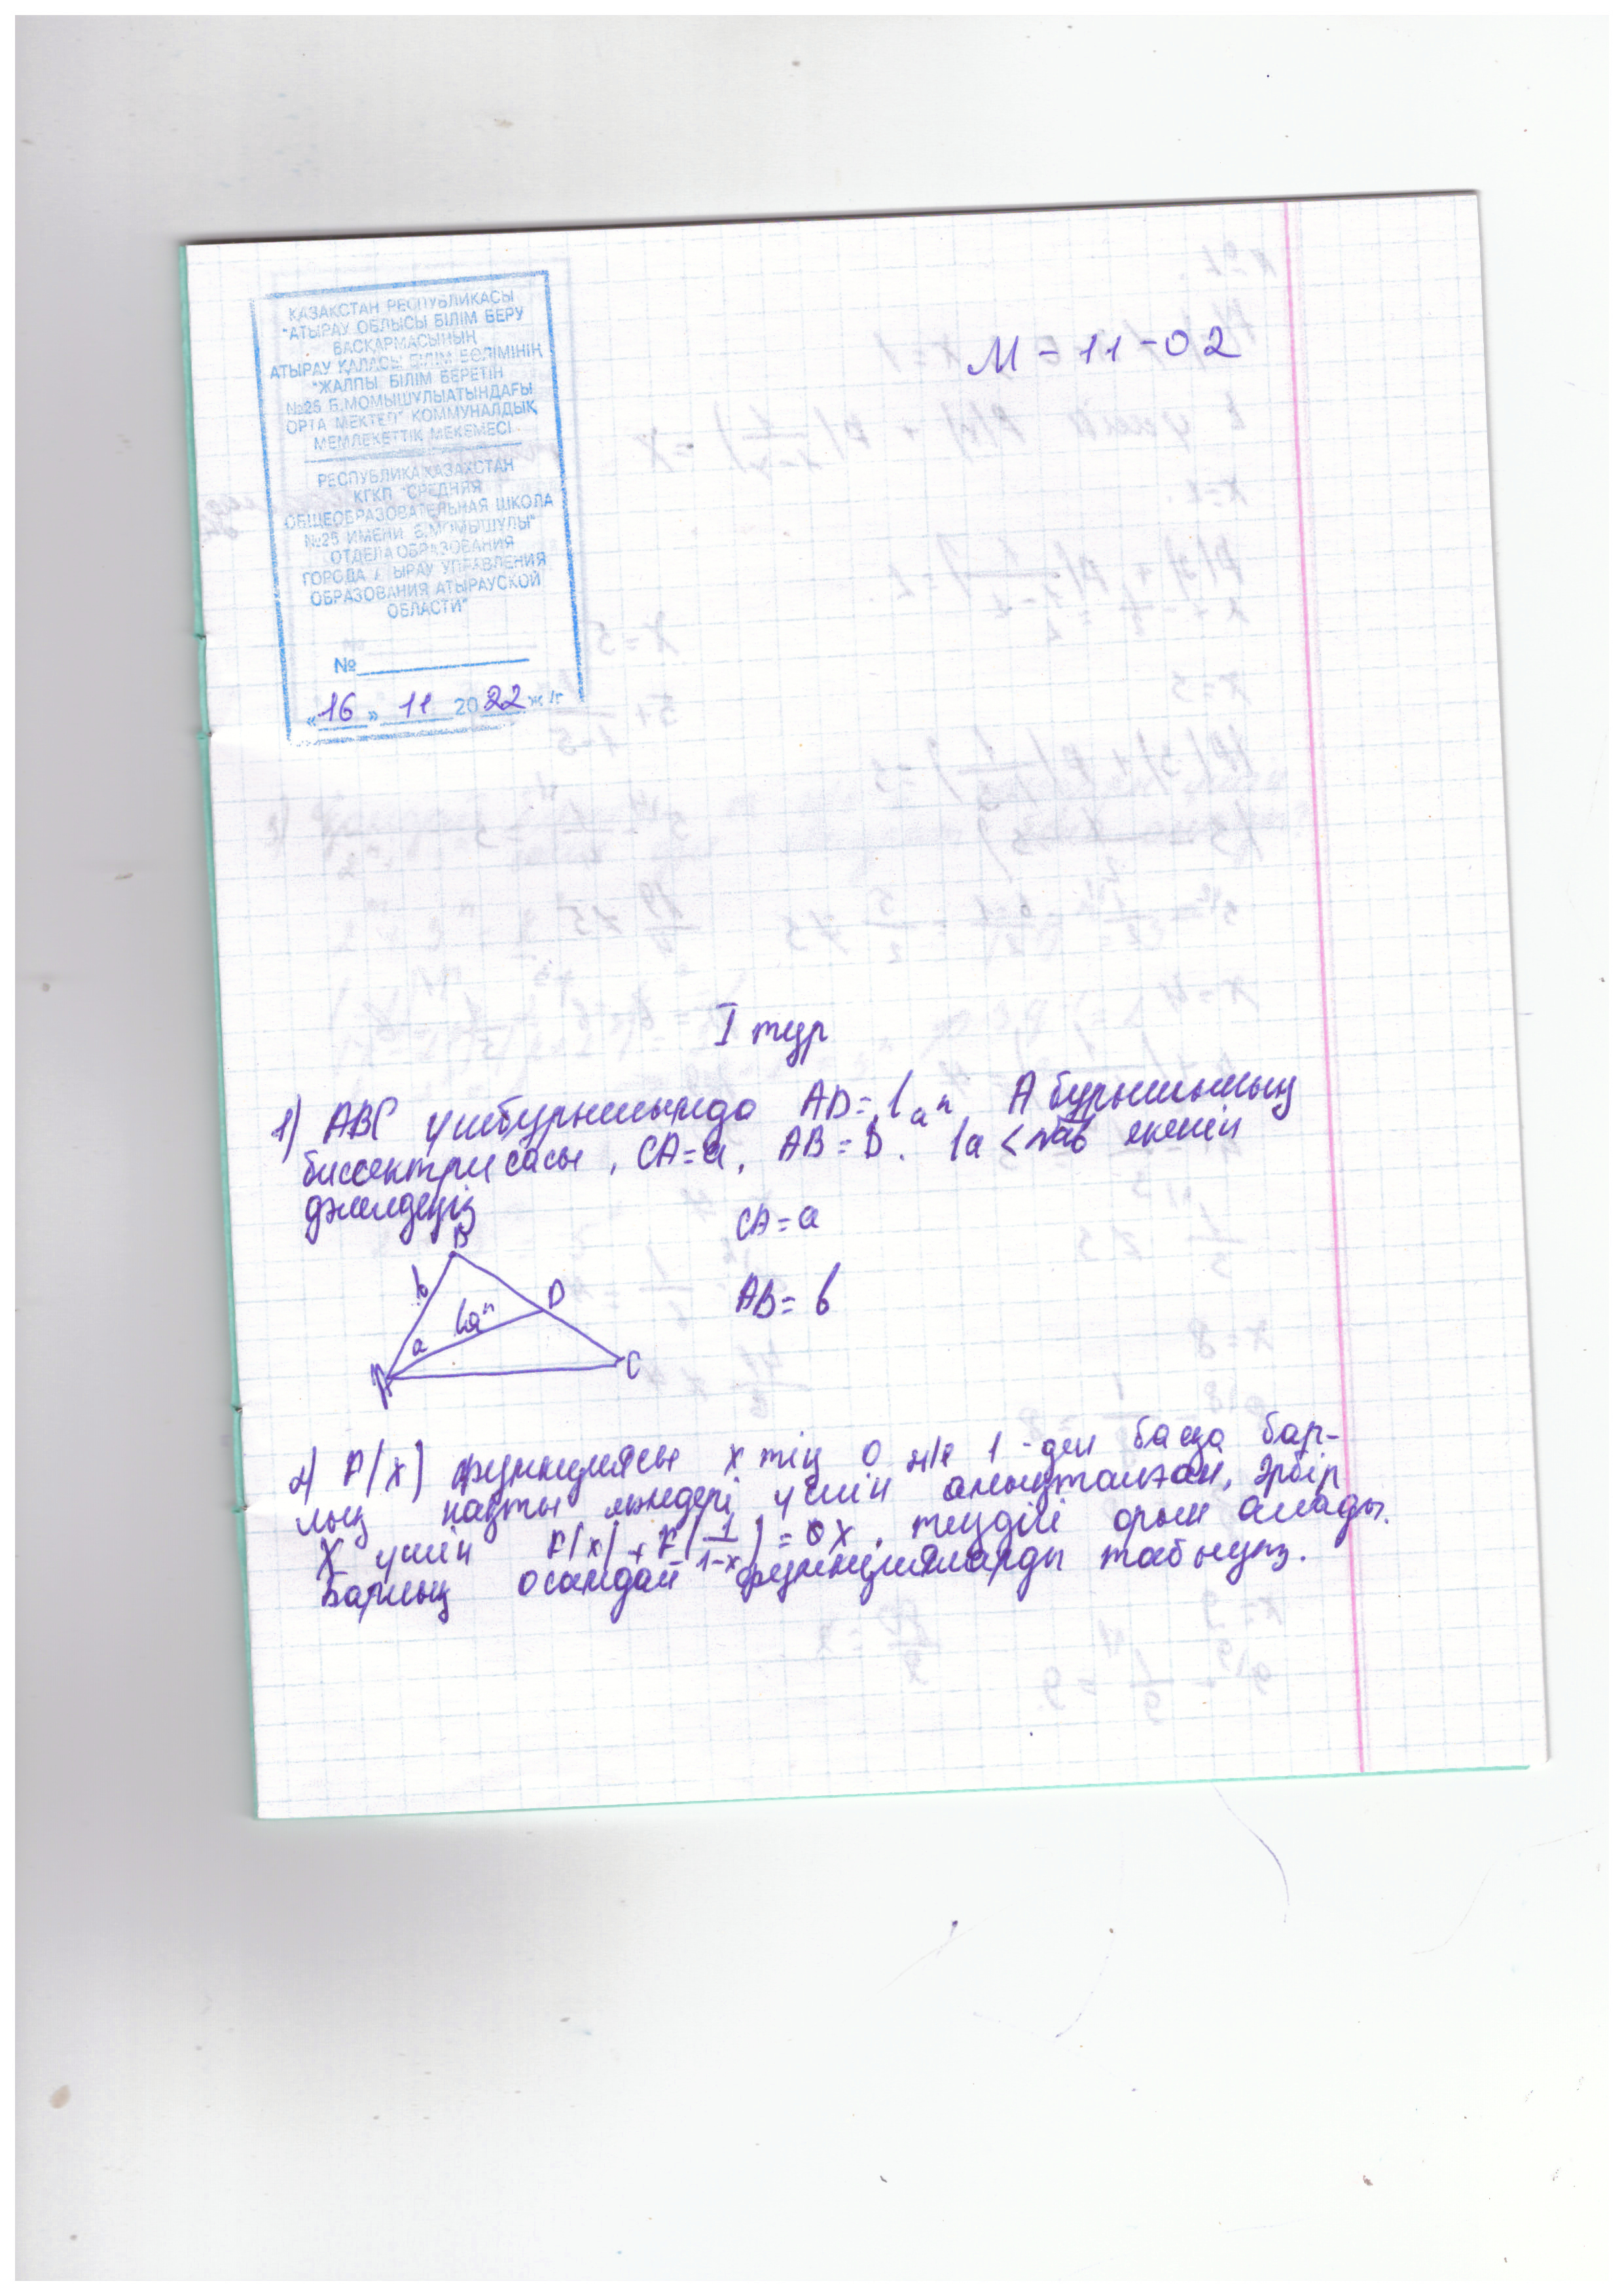 ҚАЗАҚСТАН РЕСПУБЛИКАСЫ
"АТЫРАУ ОБЛЫСЫ БІЛІМ БЕРУ
БАСҚАРМАСЫНЫҢ
АТЫРАУ ҚАЛАСЫ БІЛІМ БӨЛІМІНІҢ
"ЖАЛПЫ БІЛІМ БЕРЕТІН
№25 Б.МОМЫШҰЛЫ АТЫНДАҒЫ
ОРТА МЕКТЕП" КОММУНАЛДЫҚ
МЕМЛЕКЕТТІК МЕКЕМЕСІ
РЕСПУБЛИКА КАЗАХСТАН
КГКП "СРЕДНЯЯ
ОБЩЕОБРАЗОВАТЕЛЬНАЯ ШКОЛА
№25 ИМЕНИ Б.МОМЫШУЛЫ"
ОТДЕЛА ОБРАЗОВАНИЯ
ГОРОДА АТЫРАУ УПРАВЛЕНИЯ
ОБРАЗОВАНИЯ АТЫРАУСКОЙ
ОБЛАСТИ"
№
«16» 11 2022 ж/г
М - 11 - 02
I тур
1) АВС үшбұрышында AD = lₐ, А бұрышының
биссектрисасы, CA = a, AB = b. la < екенін
дәлелдеңіз
CA = a
AB = b
B
b
D
a
A
C
2) F(x) функциясы x тің 0 ж/е 1 - ден басқа бар-
лық нақты мәндері үшін анықталған, әрбір
X үшін F(x) + F(1/1-x) = x, теңдігі орын алады.
Барлық осындай функцияларды табыңыз.